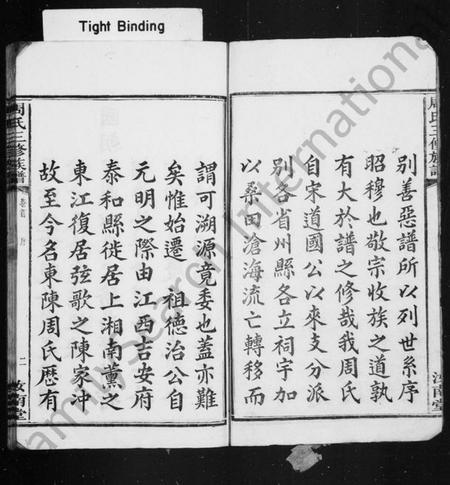 Tight Binding
周氏三修族譜
別善惡譜所以列世系序
昭穆也敬宗收族之道孰
有大於譜之修哉我周氏
自宋道國公以來支分派
別各省州縣各立祠宇加
以桑田滄海流亡轉移而
汝南堂
謂可溯源竟委也蓋亦難
矣惟始遷 祖德治公自
元明之際由江西吉安府
泰和縣徙居上湘南薰之
東江復居弦歌之陳家冲
故至今名東陳周氏歷有
周氏三修族譜
卷首 序
二
汝南堂
FamilySearch International